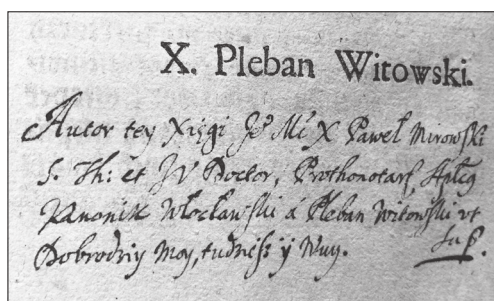 X. Pleban Witowski.
Autor tey Xięgi Je᷎ Mć X Paweł Mirowski
S. Th: et JV Doctor, Prothonotarỹ, Aplcg
Kanonik Włocławski á Pleban Witowski vt
Dobrodziy Moy, tudziesz ÿ Wuy. sup.